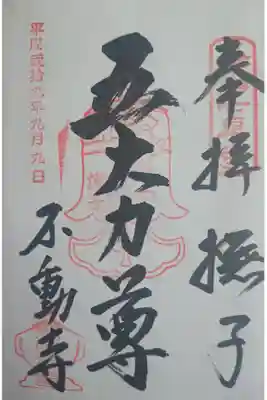 奉拝 撫子
五大力尊
不動寺
平成貳拾九年九月九日